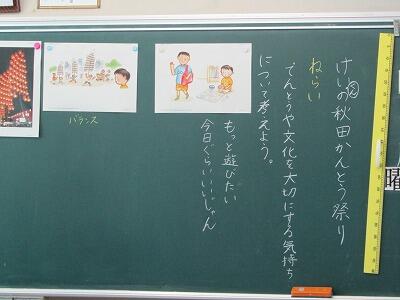 曜
けいの秋田かんとう祭り
ねらい
でんとうや文化を大切にする気持ち
について考えよう。
もっと遊びたい
今日ぐらいいいじゃん
バランス